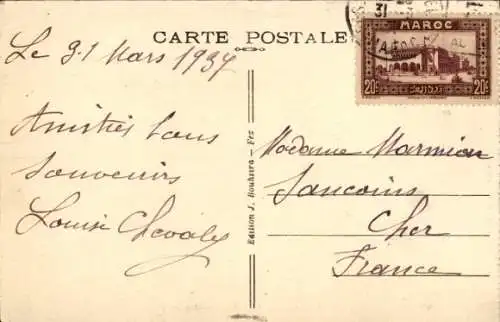 CARTE POSTALE
MAROC
20c 20c
Le 31 Mars 1937
Amitiés bons
souvenirs
Louise Chevaley
Edition J. Bouhsira - Fez
Madame Marmion
Sancoins
Cher
France